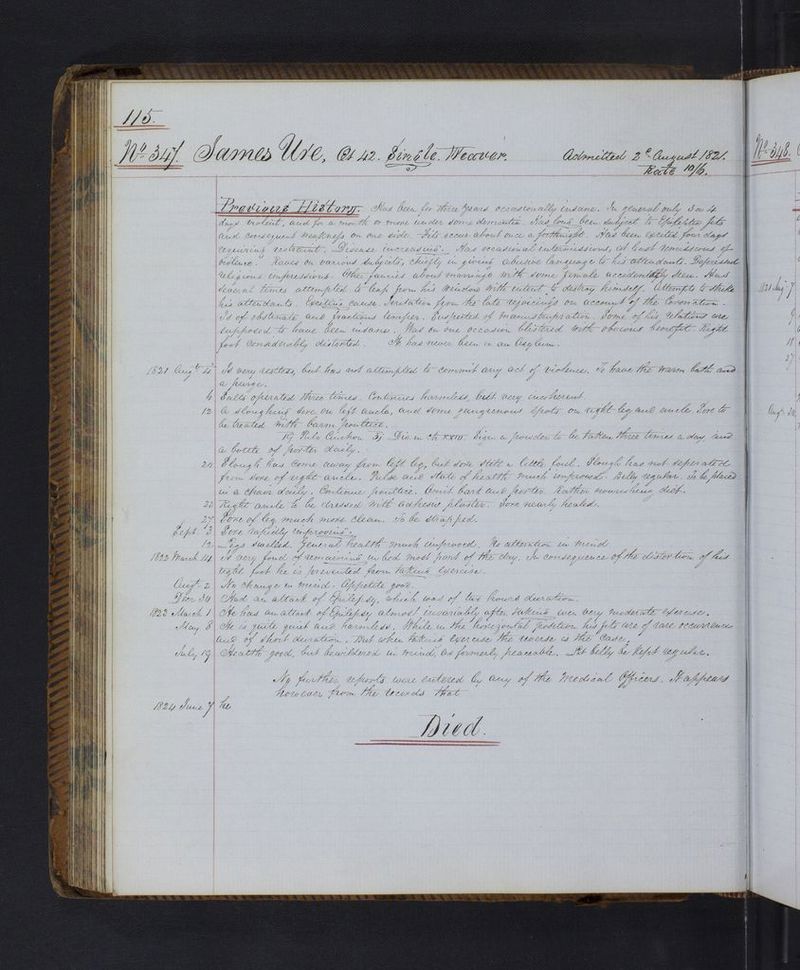 115.
No 347. James Ure, Æt 42. Single. Weaver. Admitted 2d August 1821.
Rate 10/6.
Previous History. Has been for three years occasionally insane. In general only 3 or 4
days violent, and for a month or more under some dementia. Has long been subject to Epileptic fits
and consequent weakness on one side. Fits occur about once a fortnight. Has been excited four days
requiring restraint. Disease increasing. Has occasional intermissions, at least remissions of
violence. Raves on various subjects, chiefly in giving abusive language to his attendants. Depressed
religious impressions. Other fancies about marriage with some female accidentally seen. Has
several times attempted to leap from his window with intent to destroy himself. Attempts to strike
his attendants. Exciting cause. Irritation from the late rejoicings on account of the Coronation.
Is of obstinate and fractious temper. Suspected of manustupration. Some of his relations are
supposed to have been insane. Was on one occasion blistered with obvious benefit. Right
foot considerably distorted. He has never been in an asylum.
1821 Augt 4 Is very restless, but has not attempted to commit any act of violence. To have the warm bath and
a purge.
6 Salts operated three times. Continues harmless, but very incoherent.
12 A sloughing sore on left ancle, and some gangrenous spots on right leg and ancle. Sore to
be treated with barm poultice.
a powder to be taken three times a day and
a bottle of porter daily.
20 Slough has come away from left leg, but sore still a little foul. Slough has not seperated
from sore of right ancle. Pulse and state of health much improved. Belly regular. To be placed
in a chair daily. Continue poultice. Omit bark and porter. Rather nourishing diet.
22 Right ancle to be dressed with adhesive plaster. Sore nearly healed.
27 Sore of leg much more clean. To be strapped.
Sept. 3 Sore rapidly improving.
12 Legs swelled. General health much improved. No alteration in mind
1822 March 14 Is very fond of remaining in bed most part of the day. In consequence of the distortion of his
right foot he is prevented from taking exercise.
Augt 2 No change in mind. Appetite good.
Had an attack of Epilepsy, which was of two hours duration.
1823 March 1 He has an attack of Epilepsy almost invariably after taking even very moderate exercise.
May 8 He is quite quiet and harmless. While in the horizontal position his fits are of rare occurrence
and of short duration. But when taking exercise the reverse is the case.
July 19 Health good, but bewildered in mind, as formerly, peaceable. Let belly be kept regular.
No further reports were entered by any of the Medical Officers. It appears
however from the records that
1824 June 7 he
Died.
No 348.
1821 Aug 7